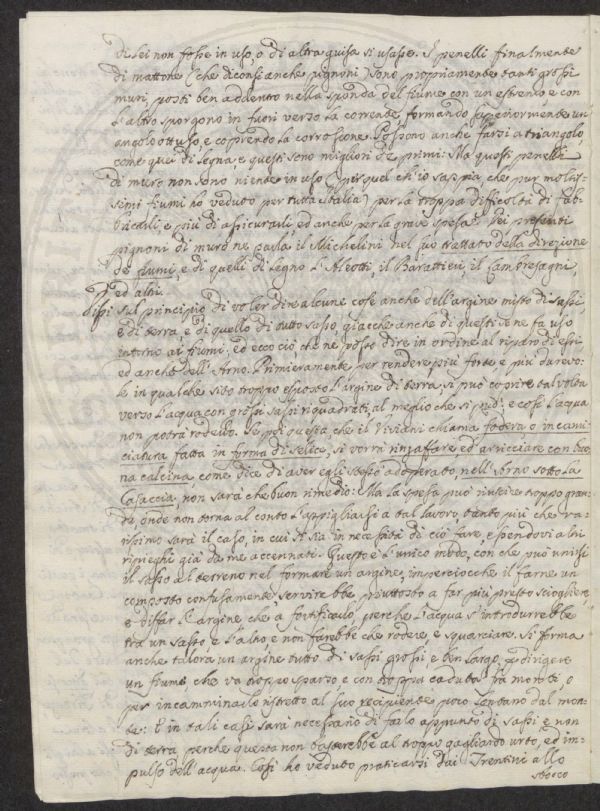 di lei non fosse in uso, o di altra guisa si usasse. I penelli finalmente
di mattone (che diconsi anche pignoni) sono propriamente tanti grossi
muri, posti ben addentro nella sponda del fiume con un estremo, e con
l'altro sporgono in fuori verso la corrente formando superiormente un
angolo ottuso, e coprendo la corrosione. Possono anche farsi a triangolo,
come quei di legna, e questi sono migliori de' primi: Ma questi penelli
di muro non sono niente in uso (per quel ch'io sappia, che pur moltis-
simi fiumi ho veduto per tutta Italia) per la troppa difficoltà di fab-
bricarli, e più di assicurarli, ed anche per la grave spesa. Dei presenti
pignoni di muro ne parla il Michelini nel suo trattato della direzione
de' fiumi, e di quelli di legno l'Aleotti, il Barattieri, il Cambresagni,
ed altri.
Dissi sul principio di voler dire alcune cose anche dell'argine misto di sassi,
e di terra, e di quello di tutto sasso, giacchè anche di questi se ne fa uso
intorno ai fiumi, ed ecco ciò che ne posso dire in ordine al riparo di essi,
ed anche dell'Arno. Primieramente per rendere più forte e più durevo-
le in qualche sito troppo esposto l'argine di terra, si può coprire talvolta
verso l'acqua con grossi sassi riquadrati, al meglio che si può: e così l'acqua
non potrà roderlo. Se poi questa che il Viviani chiama fodera o incami-
ciatura fatta in forma di selice, si vorrà rinzaffare ed arricciare con buo-
na calcina, come dice di aver egli stesso adoperato, nell'Arno sotto la
Casaccia, non sarà che buon rimedio: Ma la spesa può riuscire troppo gran-
de, onde non torna al conto l'appigliarsi a tal lavoro, tanto più che ra-
rissimo sarà il caso, in cui si sia in necessità di ciò fare, essendovi altri
ripieghi già da me accennati. Questo è l'unico modo, con che può unirsi
il sasso al terreno nel formare un argine, imperciocchè il farne un
composto confusamente servirebbe piuttosto a far più presto sciogliere,
e disfar l'argine che a fortificarlo, perchè l'acqua s'introdurrebbe
tra un sasso, e l'altro e non farebbe che rodere, e squarciare. Si forma
anche talora un argine tutto di sassi grossi e ben largo per dirigere
un fiume, che va troppo sparso e con troppa caduta fra monti, o
per incamminarlo ristretto al suo recipiente poco lontano dal mon-
te: E in tali casi sarà necessario di farlo appunto di sassi, e non
di terra, perchè questa non basterebbe al troppo gagliardo urto, ed im-
pulso dell'acqua. Così ho veduto praticarsi dai Trentini allo
sbocco